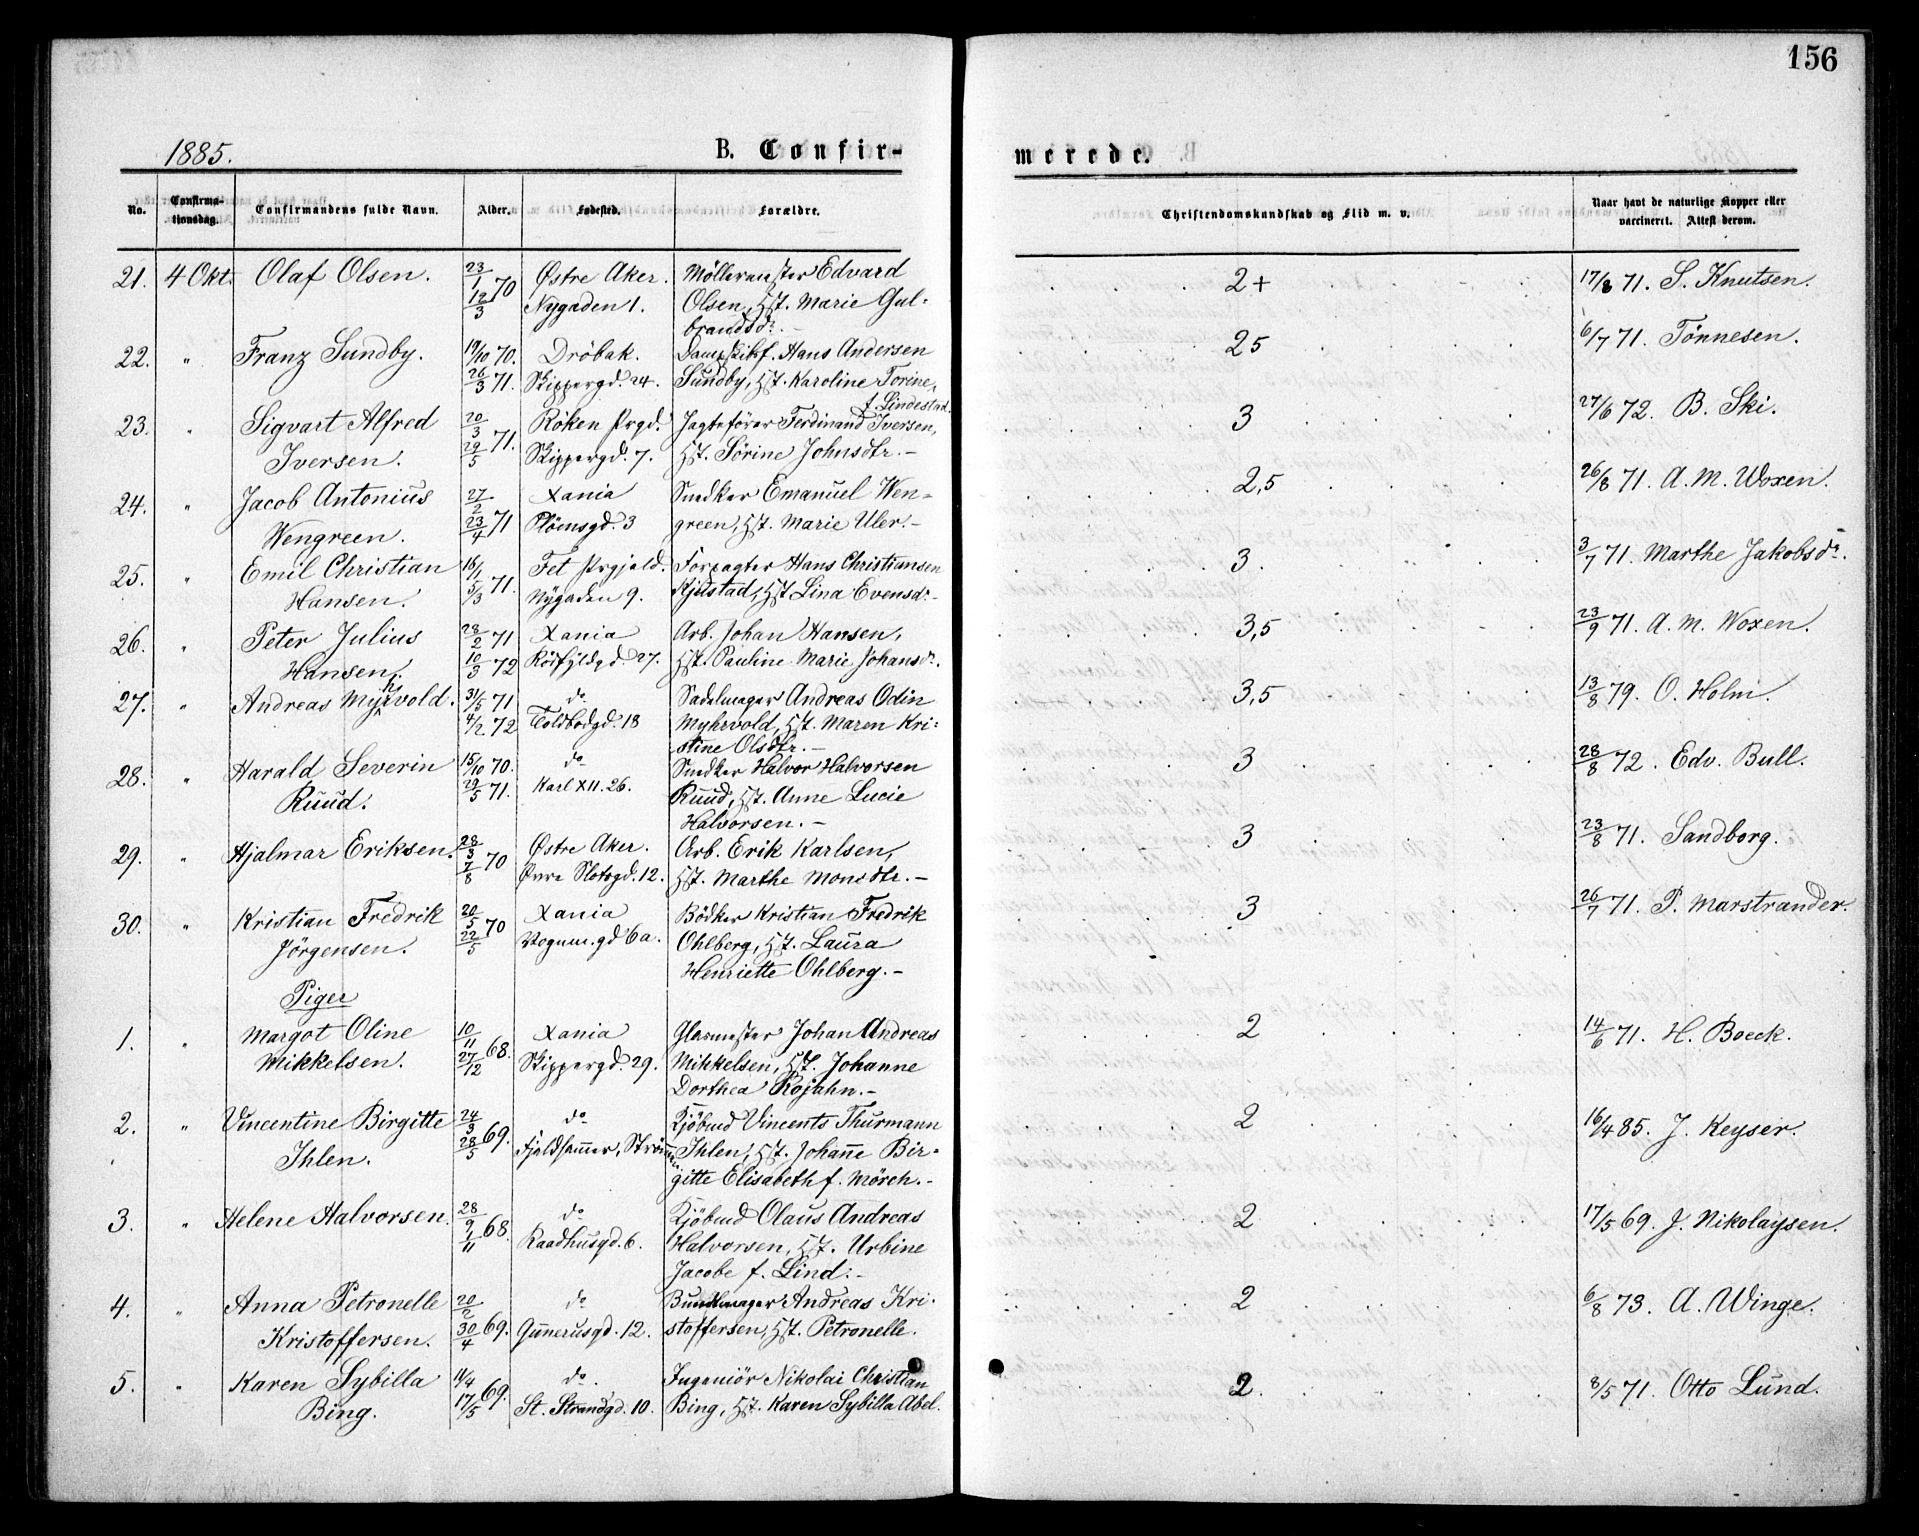 156
1885.
B. Confir-
merede.
No.
Confirma-
tionsdag.
Confirmandens fulde Navn.
Alder.
Fødested.
Forældre.
Christendomskundskab og Flid m. v.
Naar havt de naturlige Kopper eller
vaccineret. Attest derom.
21. 4 Okt. Olaf Olsen. 23/1 70 Østre Aker. Möllermester Edvard 2+ 17/8 71. S. Knutsen.
12/3 Nygaden 1. Olsen, Hst. Marie Gul-
brandsdr. -
22. " Franz Sundby. 19/10 70. Dröbak. Dampskibsf. Hans Andersen 25 6/7 71. Tönnesen.
26/3 71. Skippergd. 24. Sundby, Hst. Karoline Torine,
f. Lindestad.
23. " Sigvart Alfred 20/3 71. Röken Prgd. Jagtefører Ferdinand Iversen, 3 27/6 72. B. Ski.
Iversen. 29/5 Skippergd. 7. Hst. Sörine Johnsdtr. -
24. " Jacob Antonius 27/2 71 Xania Snedker Emanuel Wen- 2,5 26/8 71. A. M. Woxen.
Wengreen. 23/4 Plömsgd. 3 green, Hst. Marie Uler. -
25. " Emil Christian 16/1 71. Fet Prgjeld. Forpagter Hans Christiansen 3. 3/7 71. Marthe Jakobsdr.
Hansen. 5/3 Nygaden 9. Kjustad, Hst. Lina Evensdr. -
26. " Peter Julius 28/2 71 Xania Arb. Johan Hansen, 3,5 23/9 71. A. M. Woxen.
Hansen. 10/3 72 Rödfyldgd. 27. Hst. Pauline Marie Johansdr.
27. " Andreas Myhrvold. 31/5 71 do Sadelmager Andreas Odin 3,5 13/8 79. O. Holm.
4/2 72 Toldbodgd. 18 Myhrvold, Hst. Maren Kri-
stine Olsdtr. -
28. " Harald Severin 15/10 70. do Snedker Halvor Halvorsen 3 28/8 72. Edv. Bull.
Ruud. 29/5 71. Karl XII. 26. Ruud, Hst. Anne Lucie
Halvorsen. -
29. " Hjalmar Eriksen. 28/3 70 Østre Aker. Arb. Erik Karlsen, 3 23/8 71. Sandborg.
7/8 Øvre Slotsgd. 12. Hst. Marthe Monsdtr. -
30. " Kristian Fredrik 20/5 70 Xania Bödker Kristian Fredrik 3 26/7 71. P. Marstrander.
Jörgensen. 22/5 Vognm.gd 6a. Ohlberg, Hst. Laura
Henriette Ohlberg. -
Piger
1. " Margot Oline 10/11 68. Xania Glasmester Johan Andreas 2 14/6 71. H. Boeck.
Mikkelsen. 27/12 Skippergd. 29. Mikkelsen, Hst. Johanne
Dorthea Rojahn. -
2. " Vincentine Birgitte 24/3 69. do Kjöbmd Vincents Thurmann 2 16/4 85. J. Keyser.
Ihlen. 28/5 Fjeldhammer, Strömmen. Ihlen, Hst. Johanne Bir-
gitte Elisabeth f. Mörch. -
3. " Helene Halvorsen. 28/9 68. do Kjöbmd Olaus Andreas 2 17/5 69. J. Nikolaysen.
1/11 Raadhusgd. 6. Halvorsen, Hst. Urbine
Jacobe f. Lind. -
4. " Anna Petronelle 20/2 69. do Bundtmager Andreas Kri- 2 6/8 73. A. Winge.
Kristoffersen. 30/4 Gunnerusgd. 12. stoffersen, Hst. Petronelle.
5. " Karen Sybilla 11/4 69. do. Ingeniör Nikolai Christian 2. 8/5 71. Otto Lund.
Bing. 17/5 St. Strandgd. 10. Bing, Hst. Karen Sybilla Abel.